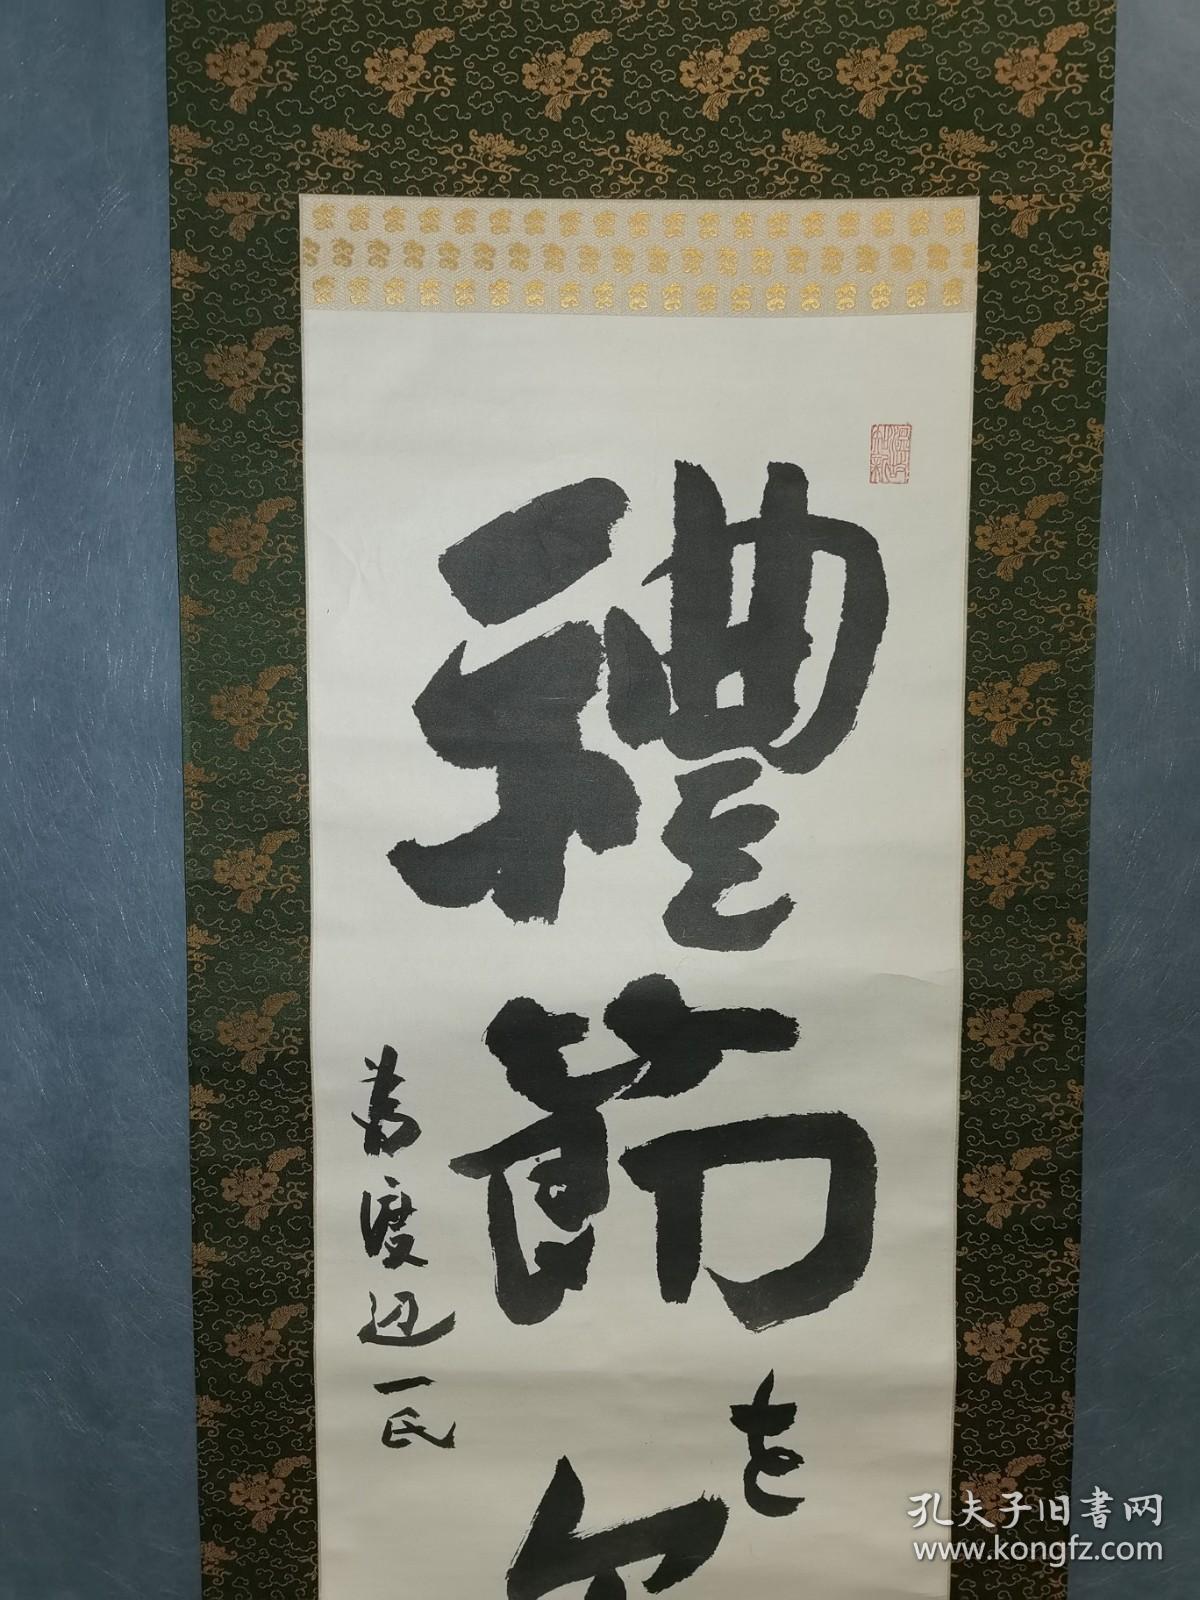 禮節を
為渡辺一氏
温故知新
孔夫子旧書网
www.kongfz.com